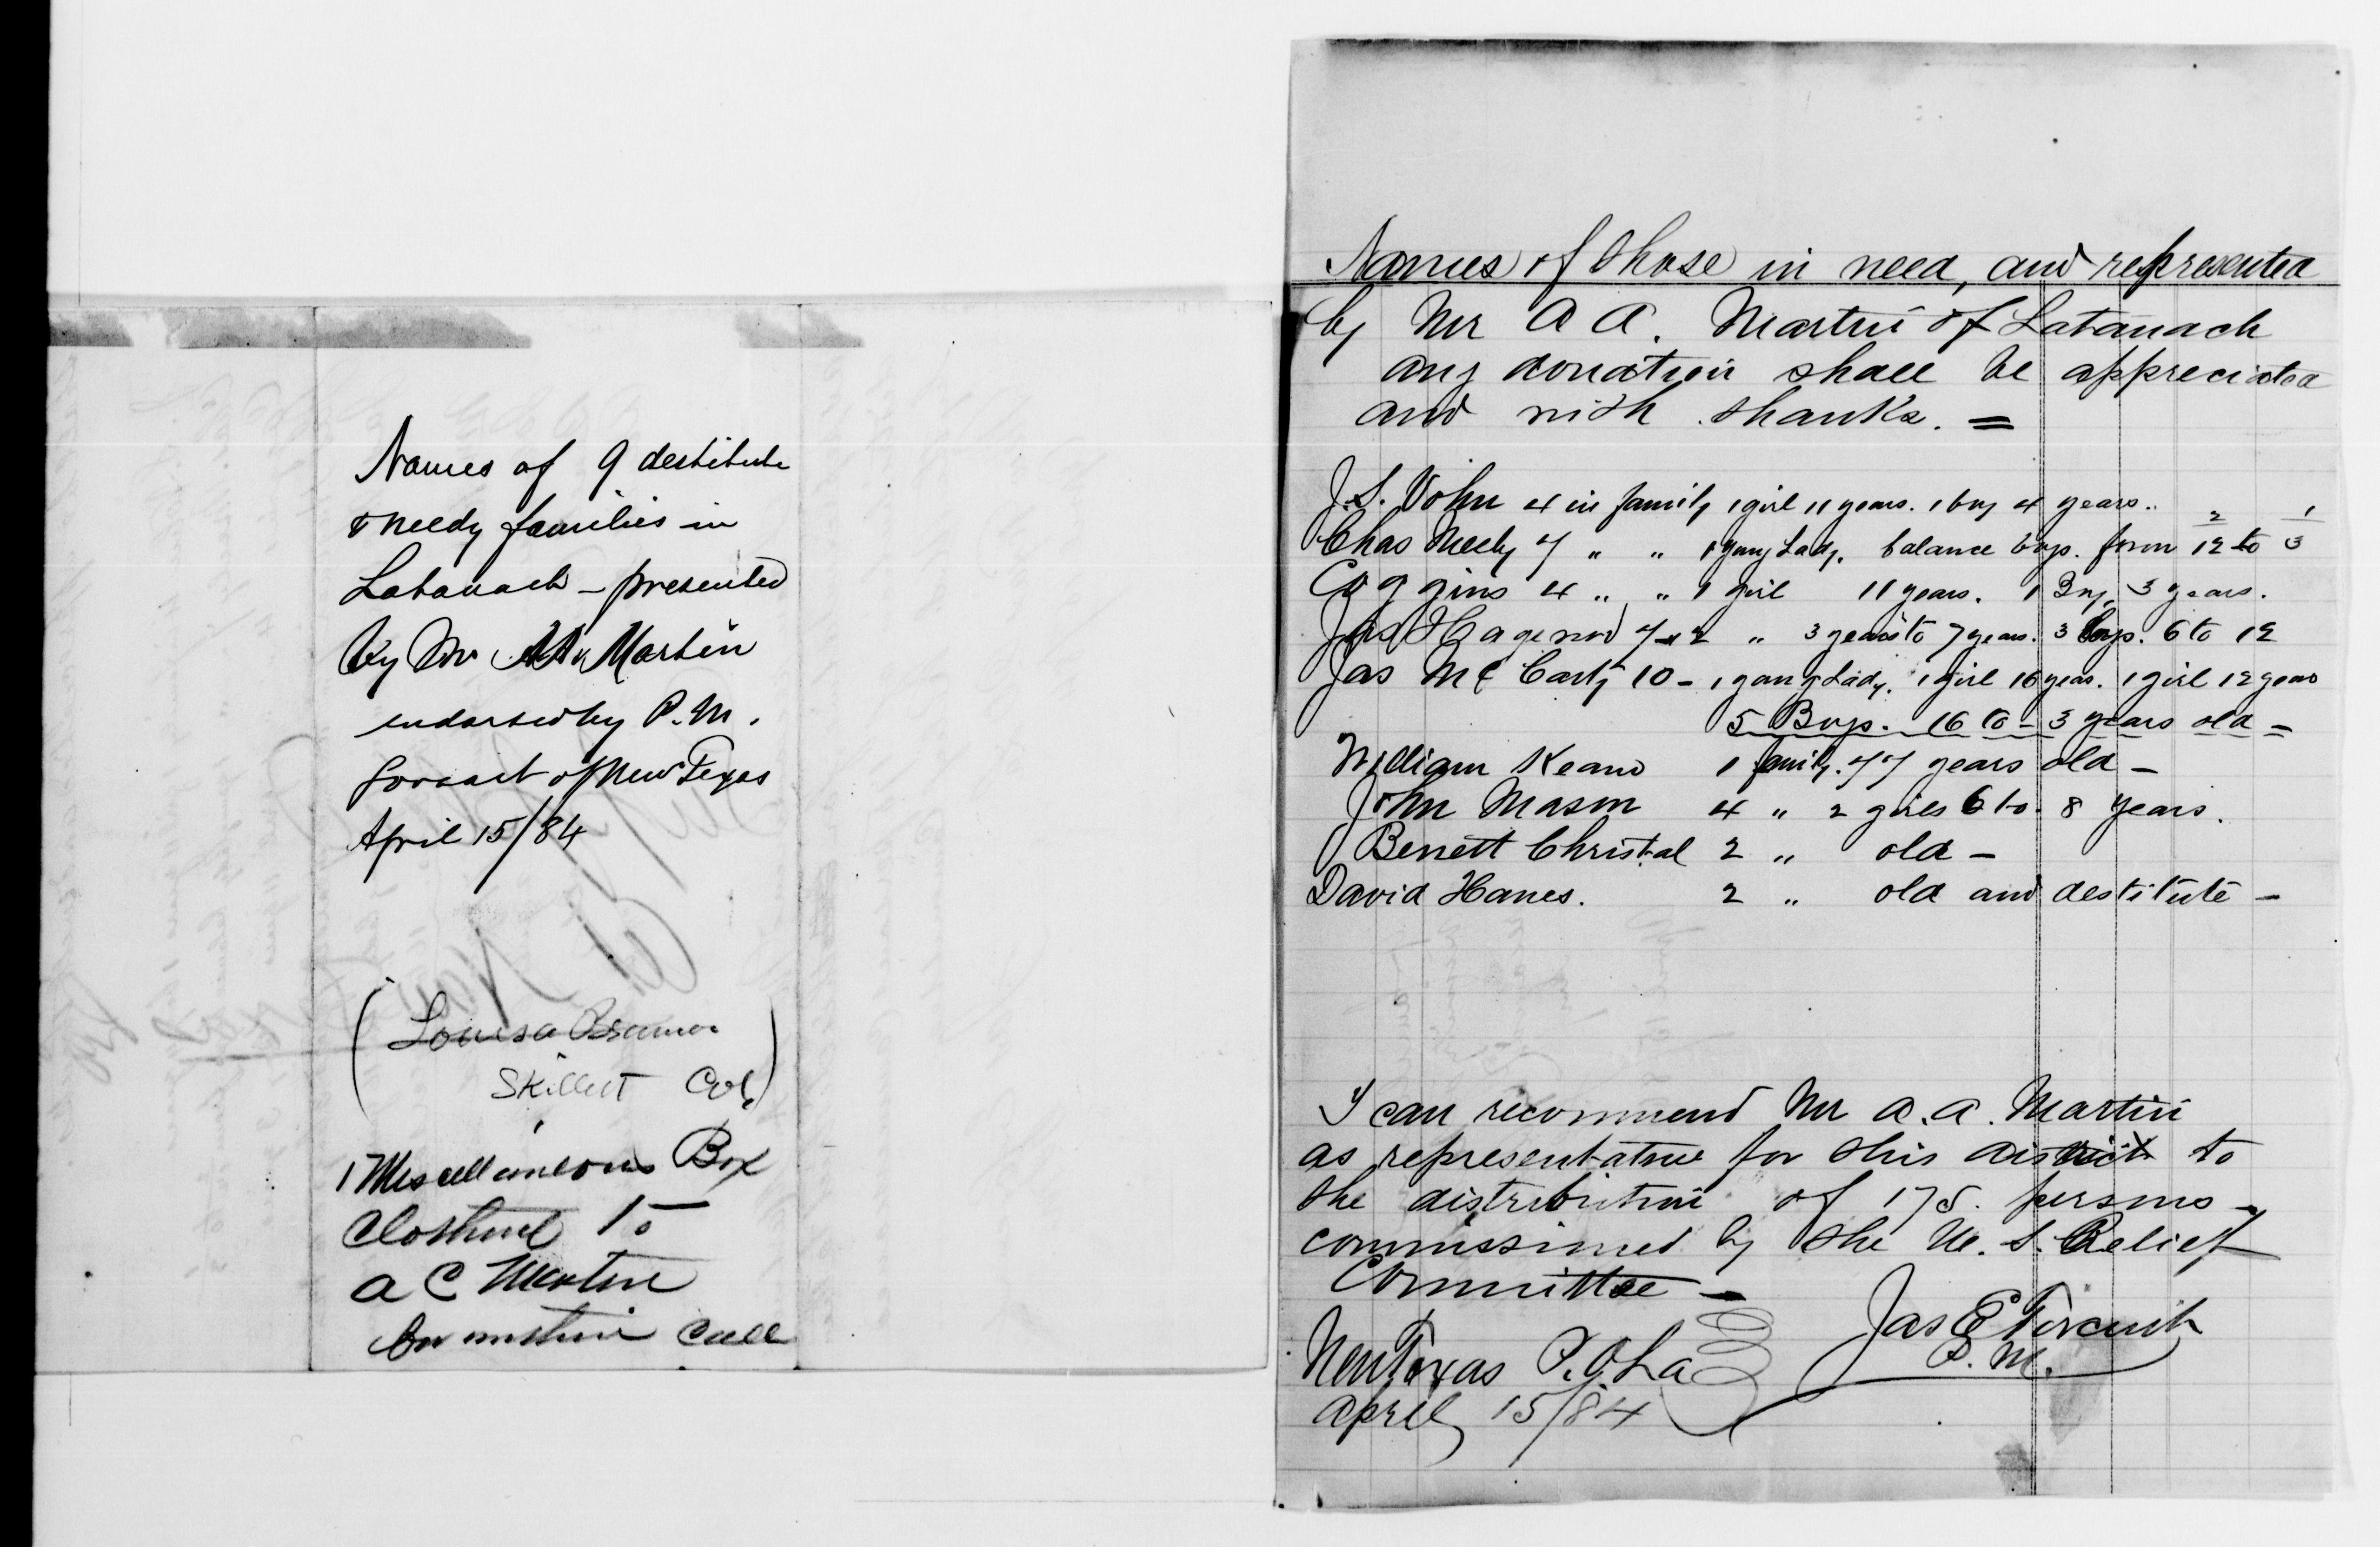 Names of 9 destitute
& needy families in
Latanach - presented
by Mr AA Martin
endorsed by P.M.
for east of New Texas
April 15/84
(Louisa
Skillett Col)
1 Miscellaneous Box
to
A C Martin
call
Names of those in need, and represented
by Mr A A. Martin of Latanach
any donation shall be appreciated
and with thanks. =
J.S. John 4 in family 1 girl 11 years. 1 boy 4 years..
Chas Neely 7 " " 1 young Lady. balance boys. from 12 to 3
Coggins 4 " " 1 girl 11 years. 1 Boy, 3 years.
Jas Hagenow 7 - 2 " 3 years to 7 years. 3 boys. 6 to 12
Jas McCarty 10 - 1 young Lady. 1 girl 16 years. 1 girl 12 years
5 Boys. 16 to - 3 years old -
William Keano 1 family. 77 years old -
John Mason 4 " 2 girls 6 to 8 years.
Benett Christal 2 " old -
David Hanes. 2 " old and destitute -
I can recommend Mr A.A. Martin
as representative for this district to
the distribution of 175. persons -
commissioned by the U.S. Relief
Committee -
Jas E
P.M.
New Texas P.O. La
April 15/84